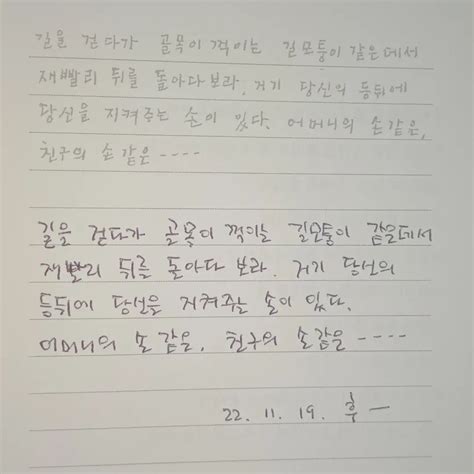 길을 걷다가 골목이 꺽이는 길모퉁이 같은데서
재빨리 뒤를 돌아다보라, 거기 당신의 등뒤에
당신을 지켜주는 손이 있다. 어머니의 손 같은,
친구의 손 같은 ----
길을 걷다가 골목이 꺽이는 길모퉁이 같은데서
재빨리 뒤를 돌아다 보라. 거기 당신의
등뒤에 당신을 지켜주는 손이 있다.
어머니의 손 같은, 친구의 손같은 ----
22. 11. 19. 후 一